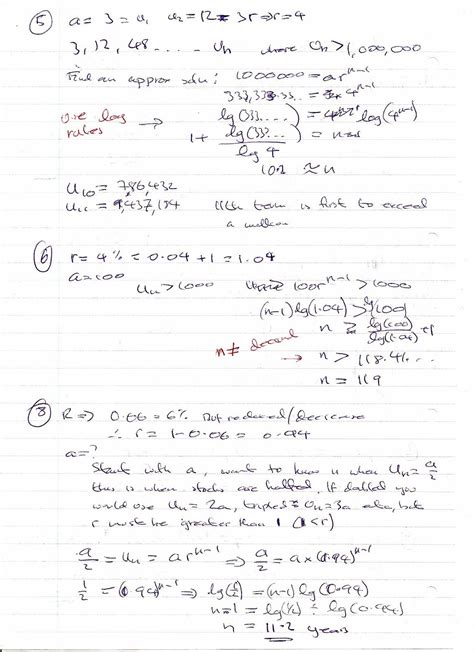 5 a = 3 = u₁ u₂ = 12 = 3r ⇒ r = 4
3, 12, 48 ..... Un where Un > 1,000,000
Find an approx soln: 1000000 = ar^(n-1)
333,333.33... = 4^(n-1)
use log rules → lg(333....) = log(4^(n-1))
1 + lg(333...)/lg 4 = n
10.1 ≈ n
U10 = 786,432
U11 = 11th term is first to exceed
a million
6 r = 4% = 0.04 + 1 = 1.04
a = 100
Un > 1000 100r^(n-1) > 1000
(n-1) lg(1.04) > lg
n ≥ lg(100)/lg(1.04) + 1
n ≠ decimal → n > 118.4...
n = 119
8 R ⇒ 0.06 = 6% But reduced/decrease
∴ r = 1 - 0.06 = 0.94
a = ?
Start with a, want to know n when Un = a/2
this is when stocks are halved. If doubled you
would use Un = 2a, tripled Un = 3a etc, but
r must be greater than 1 (1 < r)
a/2 = Un = ar^(n-1) ⇒ a/2 = a × (0.94)^(n-1)
1/2 = (0.94)^(n-1) ⇒ lg(1/2) = (n-1) lg(0.94)
n-1 = lg(1/2) ÷ lg(0.94)
n = 11.2 years